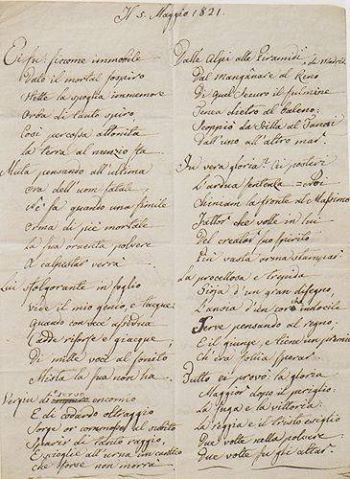 Il 5. Maggio 1821.
Ei fu: siccome immobile
Dato il mortal sospiro
Stette la spoglia immemore
Orba di tanto spiro,
Così percossa attonita
La terra al nunzio sta
Muta pensando all'ultima
Ora dell'uom fatale,
Nè sa quando una simile
Orma di piè mortale
La sua cruenta polvere
A calpestar verrà.
Lui sfolgorante in soglio
Vide il mio genio, e tacque
Quando con vece assidua
Cadde risorse e giacque,
Di mille voci al sonito
Mista la sua non ha.
Vergin di servo encomio
E di codardo oltraggio
Sorge or commosso al subito
Sparir di tanto raggio,
E scioglie all'urna un cantico
Che forse non morrà
Dalle Alpi alle Piramidi,
Dal Manzanare al Reno
Di quel securo il fulmine
Tenea dietro al baleno.
Scoppiò da Scilla al Tanai
Dall'uno all'altro mar.
Fu vera gloria? Ai posteri
L'ardua sentenza: noi
Chiniam la fronte al Massimo
Fattor che volle in lui
Del creator suo spirito
Più vasta orma stampar.
La procellosa e trepida
Gioja d'un gran disegno,
L'ansia d'un cor indocile
Ferve pensando al regno;
E il giunge, e tiene un premio
Ch'era follia sperar.
Tutto ei provò: la gloria
Maggior dopo il periglio
La fuga e la vittoria.
La reggia e il tristo esiglio
Due volte nella polvere
Due volte su gli altar.